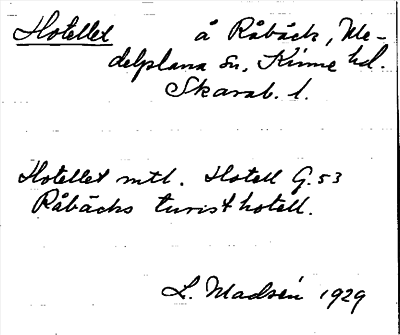 Hotellet å Råbäck, Me-
delplana sn, Kinne hd.
Skarab. l.
Hotellet mtl. Hotell G. 53
Råbäcks turisthotell.
L. Madsén 1929